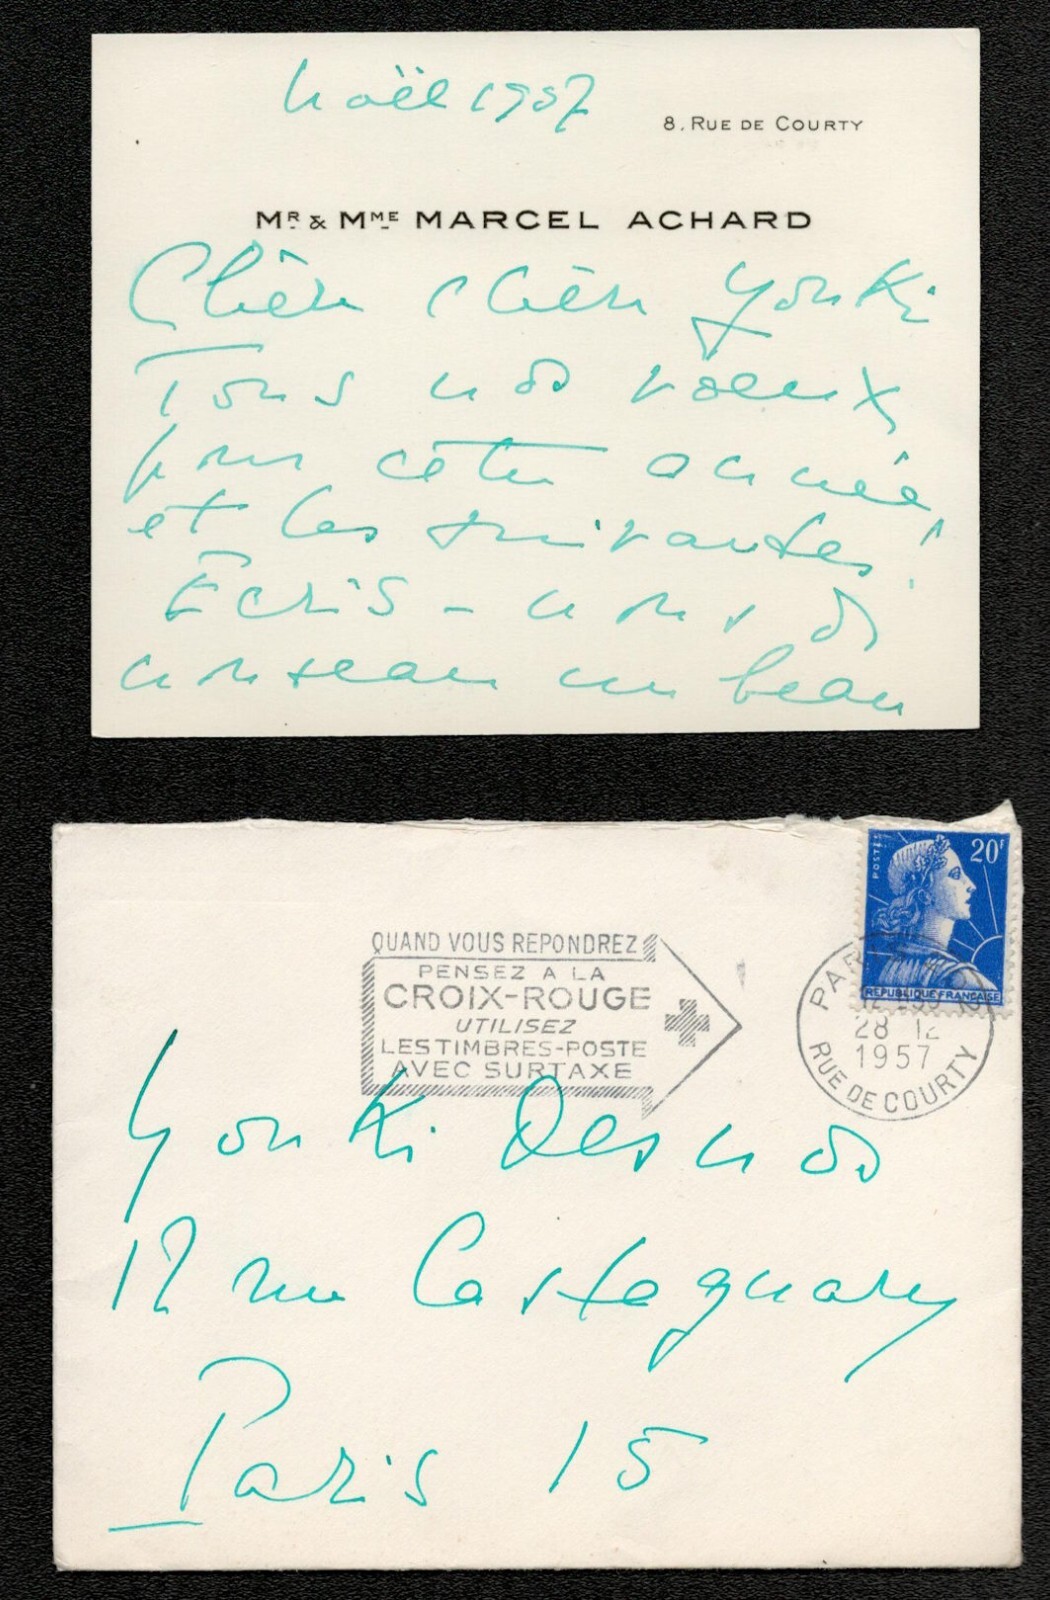 Noël 1957
8, RUE DE COURTY
MR & MME MARCEL ACHARD
Chère chère Youki
Tous nos voeux
pour cette année
et les suivantes!
Écris-nous di
nouveau un beau
POSTES
20F
REPUBLIQUE FRANÇAISE
QUAND VOUS REPONDREZ
PENSEZ A LA
CROIX-ROUGE
UTILISEZ
LES TIMBRES-POSTE
AVEC SURTAXE
28 12
1957
RUE DE COURTY
Youki Desnos
12 rue Castagnary
Paris 15